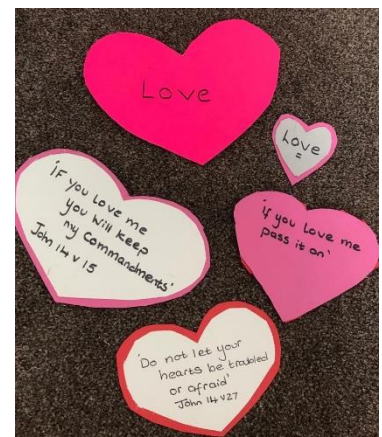 Love
Love
=
'IF you Love me
you will keep
my Commandments'
John 14 v 15
'if you Love me
pass it on'
'Do not let your
hearts be troubled
or afraid'
John 14 v27